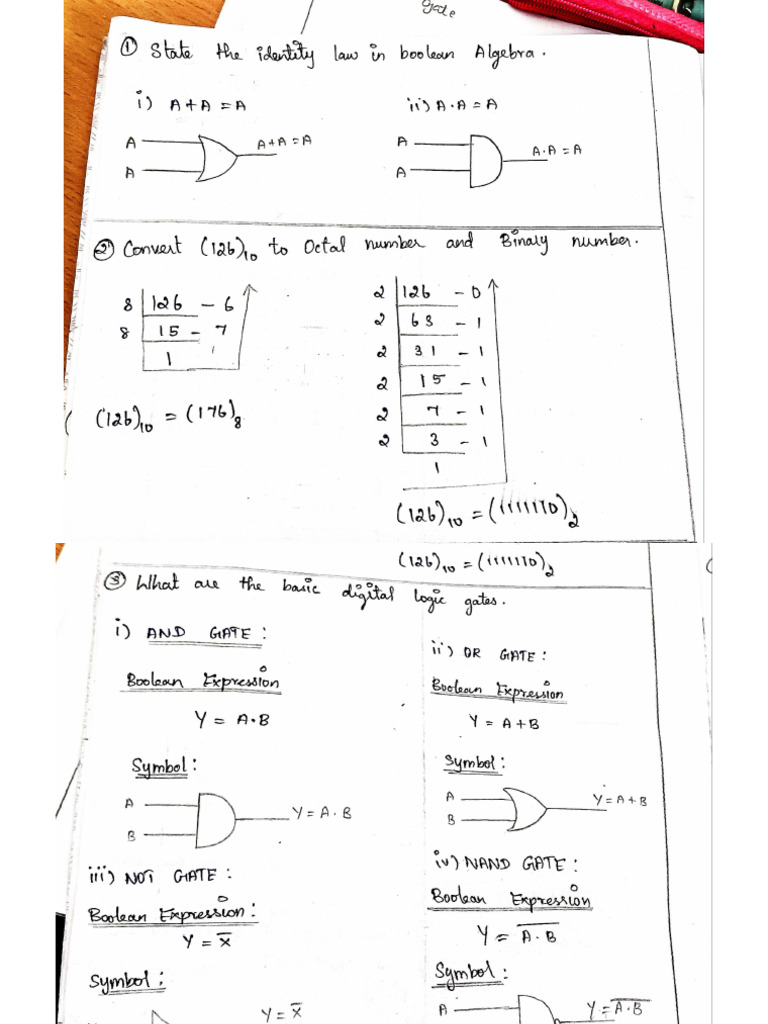 gate
① State the identity law in boolean Algebra.
i) A+A = A
ii) A·A = A
A
A
A+A = A
A
A
A·A = A
② Convert (126)₁₀ to Octal number and Binary number.
8 126 - 6
8 15 - 7
1
(126)₁₀ = (176)₈
2 126 - 0
2 63 - 1
2 31 - 1
2 15 - 1
2 7 - 1
2 3 - 1
1
(126)₁₀ = (1111110)₂
(126)₁₀ = (1111110)₂
③ What are the basic digital logic gates.
i) AND GATE :
Boolean Expression
Y = A·B
Symbol :
A
B
Y = A·B
ii) OR GATE :
Boolean Expression
Y = A+B
Symbol :
A
B
Y = A+B
iii) NOT GATE :
Boolean Expression :
Y = x̅
Symbol :
Y = x̅
iv) NAND GATE :
Boolean Expression
Y = A̅·̅B̅
Symbol :
A
Y = A̅·̅B̅